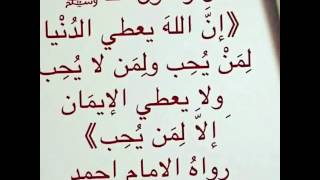 ﷺ
《إنَّ اللهَ يعطي الدُنْيا
لِمَنْ يُحِب ولِمَن لا يُحِب
وَلا يعطي الإيمَان
إلاَّ لِمَن يُحِب》
رواهُ الإمام احمد